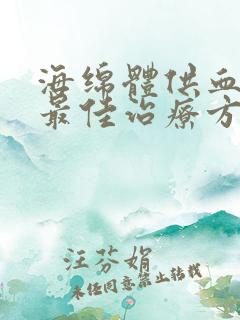 海绵體供血
最佳治療方
汪芬娟
未经同意禁止转载